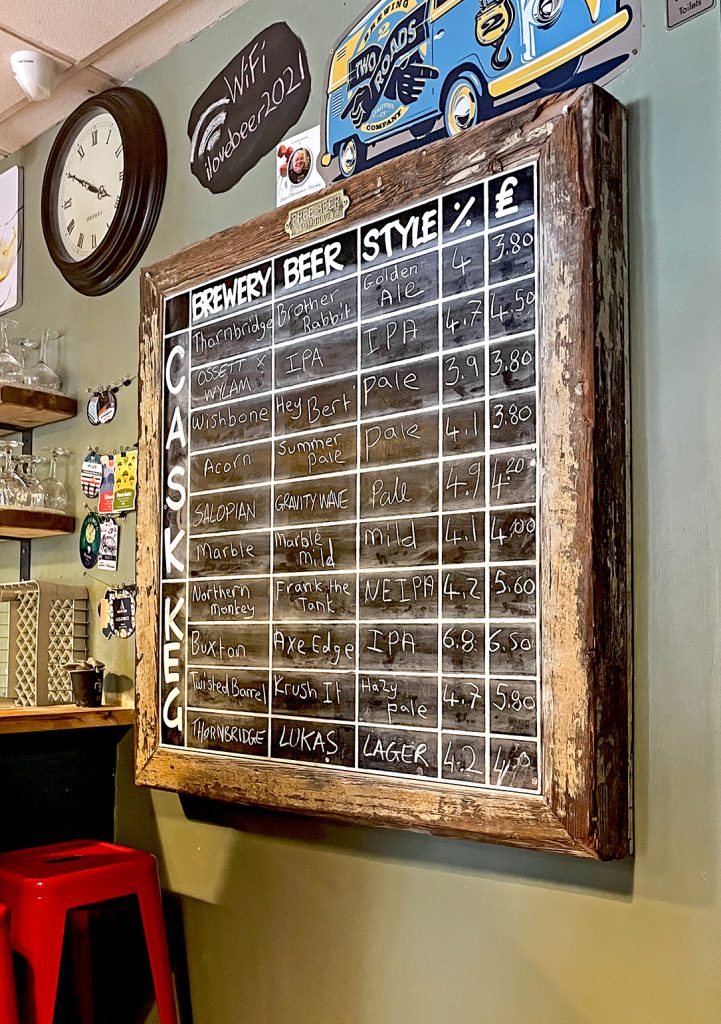 Toilets
BREWING
2
TWO
ROADS
STRATFORD
CT
COMPANY
2
WiFi
ilovebeer2021
FREE BEER
TOMORROW
BREWERY BEER STYLE % £
CASK
Thornbridge Brother Rabbit Golden Ale 4 3.80
OSSETT x WYLAM IPA IPA 4.7 4.50
Wishbone Hey Bert Pale 3.9 3.80
Acorn Summer pale Pale 4.1 3.80
SALOPIAN GRAVITY WAVE Pale 4.9 4.20
Marble Marble Mild Mild 4.1 4.00
KEG
Northern Monkey Frank the Tank NEIPA 4.2 5.60
Buxton Axe Edge IPA 6.8 6.50
Twisted Barrel Krush It Hazy pale 4.7 5.80
THORNBRIDGE LUKAS LAGER 4.2 4.00